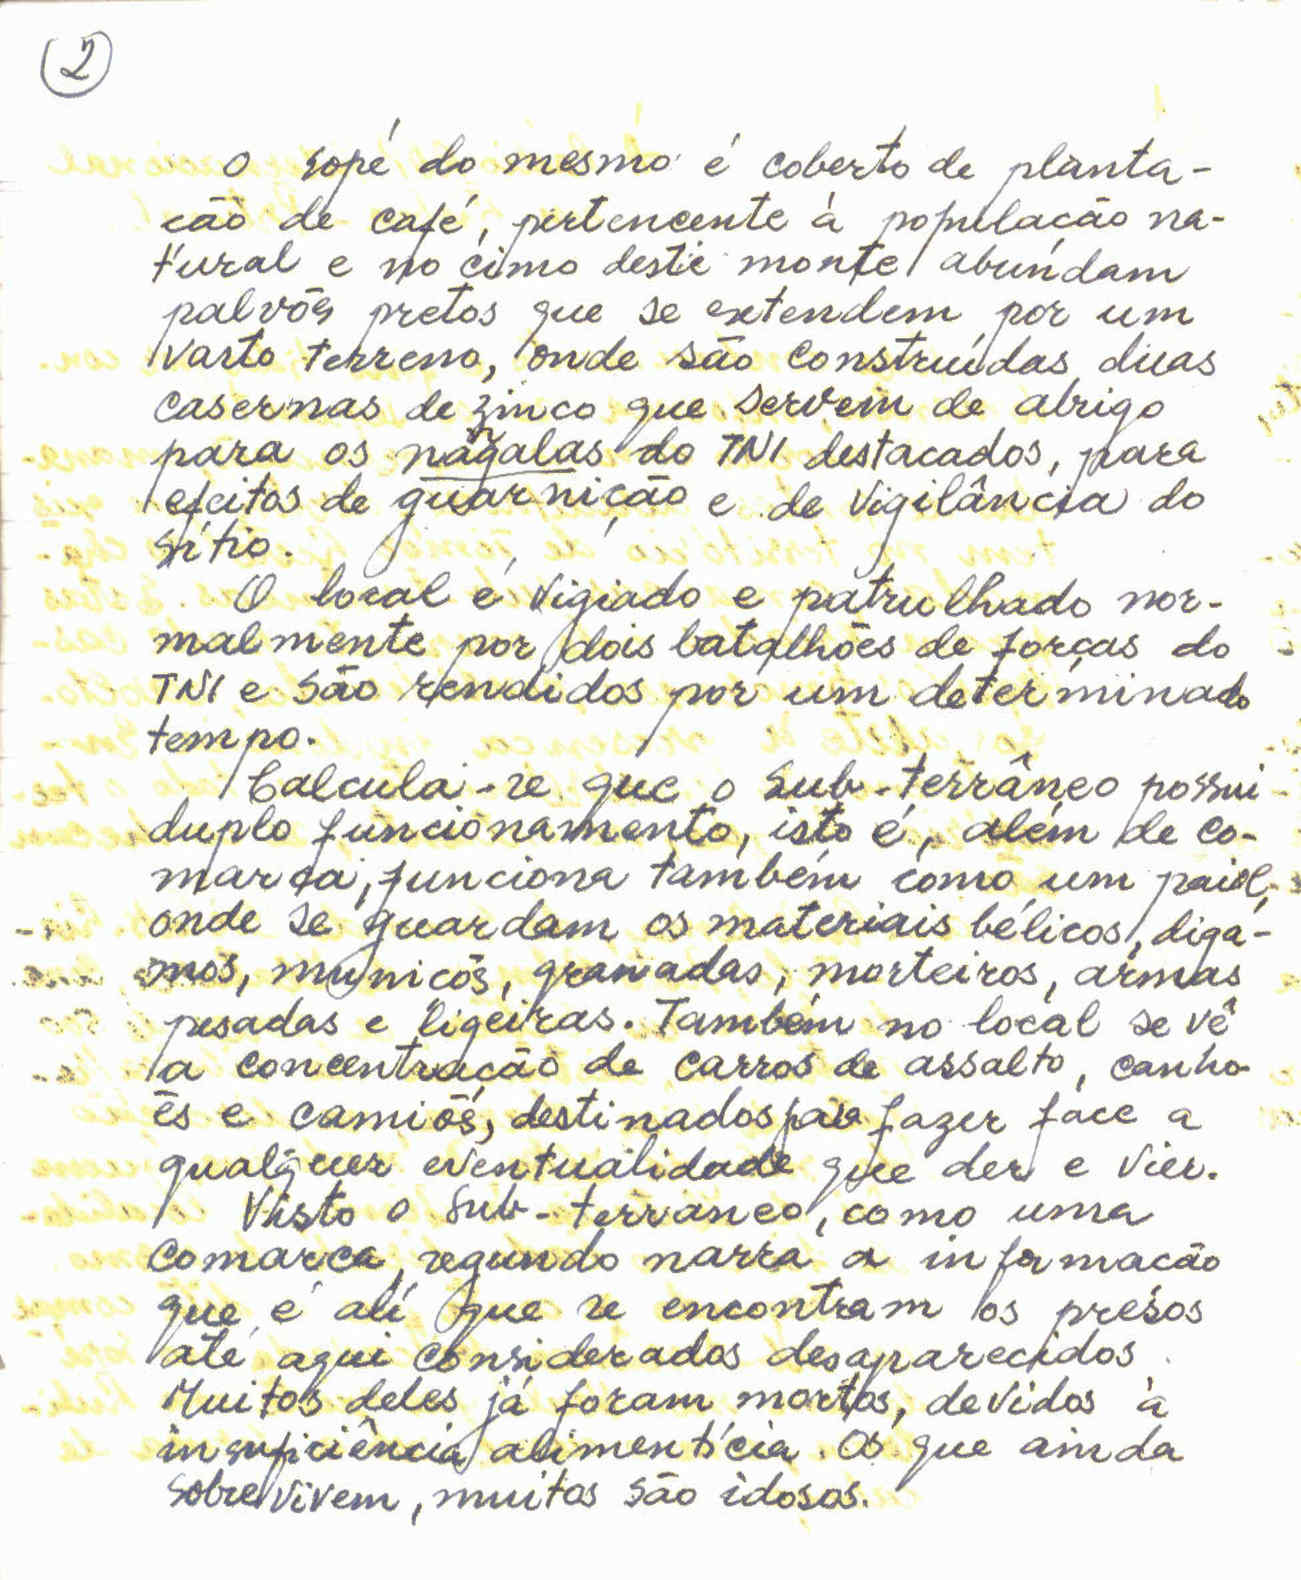 2
O sopé do mesmo é coberto de planta-
ção de café, pertencente à população na-
tural e no cimo deste monte abundam
palvões pretos que se extendem por um
vasto terreno, onde são construídas duas
casernas de zinco que servem de abrigo
para os nãgalas do TNI destacados, para
efeitos de guarnição e de vigilância do
sítio.
O local é vigiado e patrulhado nor-
malmente por dois batalhões de forças do
TNI e são rendidos por um determinado
tempo.
Calcula-se que o sub-terrâneo possui
duplo funcionamento, isto é, além de co-
marca, funciona também como um paiol,
onde se guardam os materiais bélicos, diga-
mos, municõs, granadas, morteiros, armas
pesadas e ligeiras. Também no local se vê
a concentração de carros de assalto, canho-
ẽs e camiõs, destinados para fazer face a
qualquer eventualidade que der e vier.
Visto o sub-terraneo, como uma
comarca, segundo narra a informação
que é alí que se encontram os presos
até aqui considerados desaparecidos.
Muitos deles já foram mortos, devidos à
insuficiência alimentícia. Os que ainda
sobrevivem, muitos são idosos.